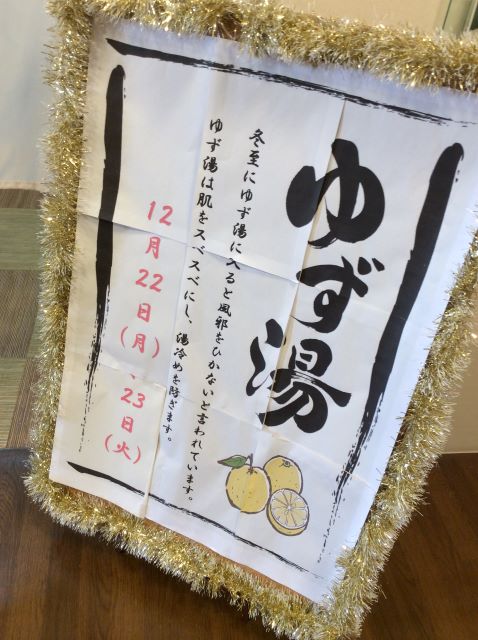 ゆず湯
冬至にゆず湯に入ると風邪をひかないと言われています。
ゆず湯は肌をスベスベにし、湯冷めを防ぎます。
12月22日(月)、23日(火)